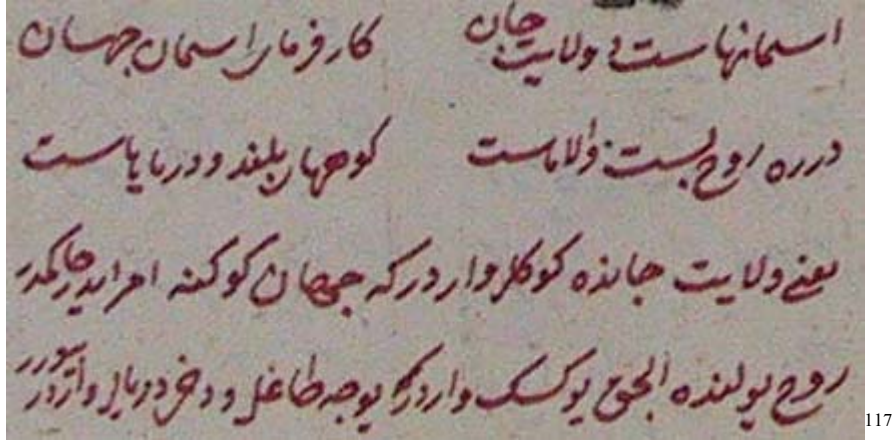 اسمانهاست در ولایت جان کار فرمای اسمان جهان
در ره روح پست و بالاهاست کوههای بلند و دریاهاست
یعنی ولایت جانده کوکلر وار در که جهان کوکنه امر ایدیجی حاکمدر
روح یولنده الچق یوکسک واردر که یوجه طاغلر و دخی دریالر واردر
117